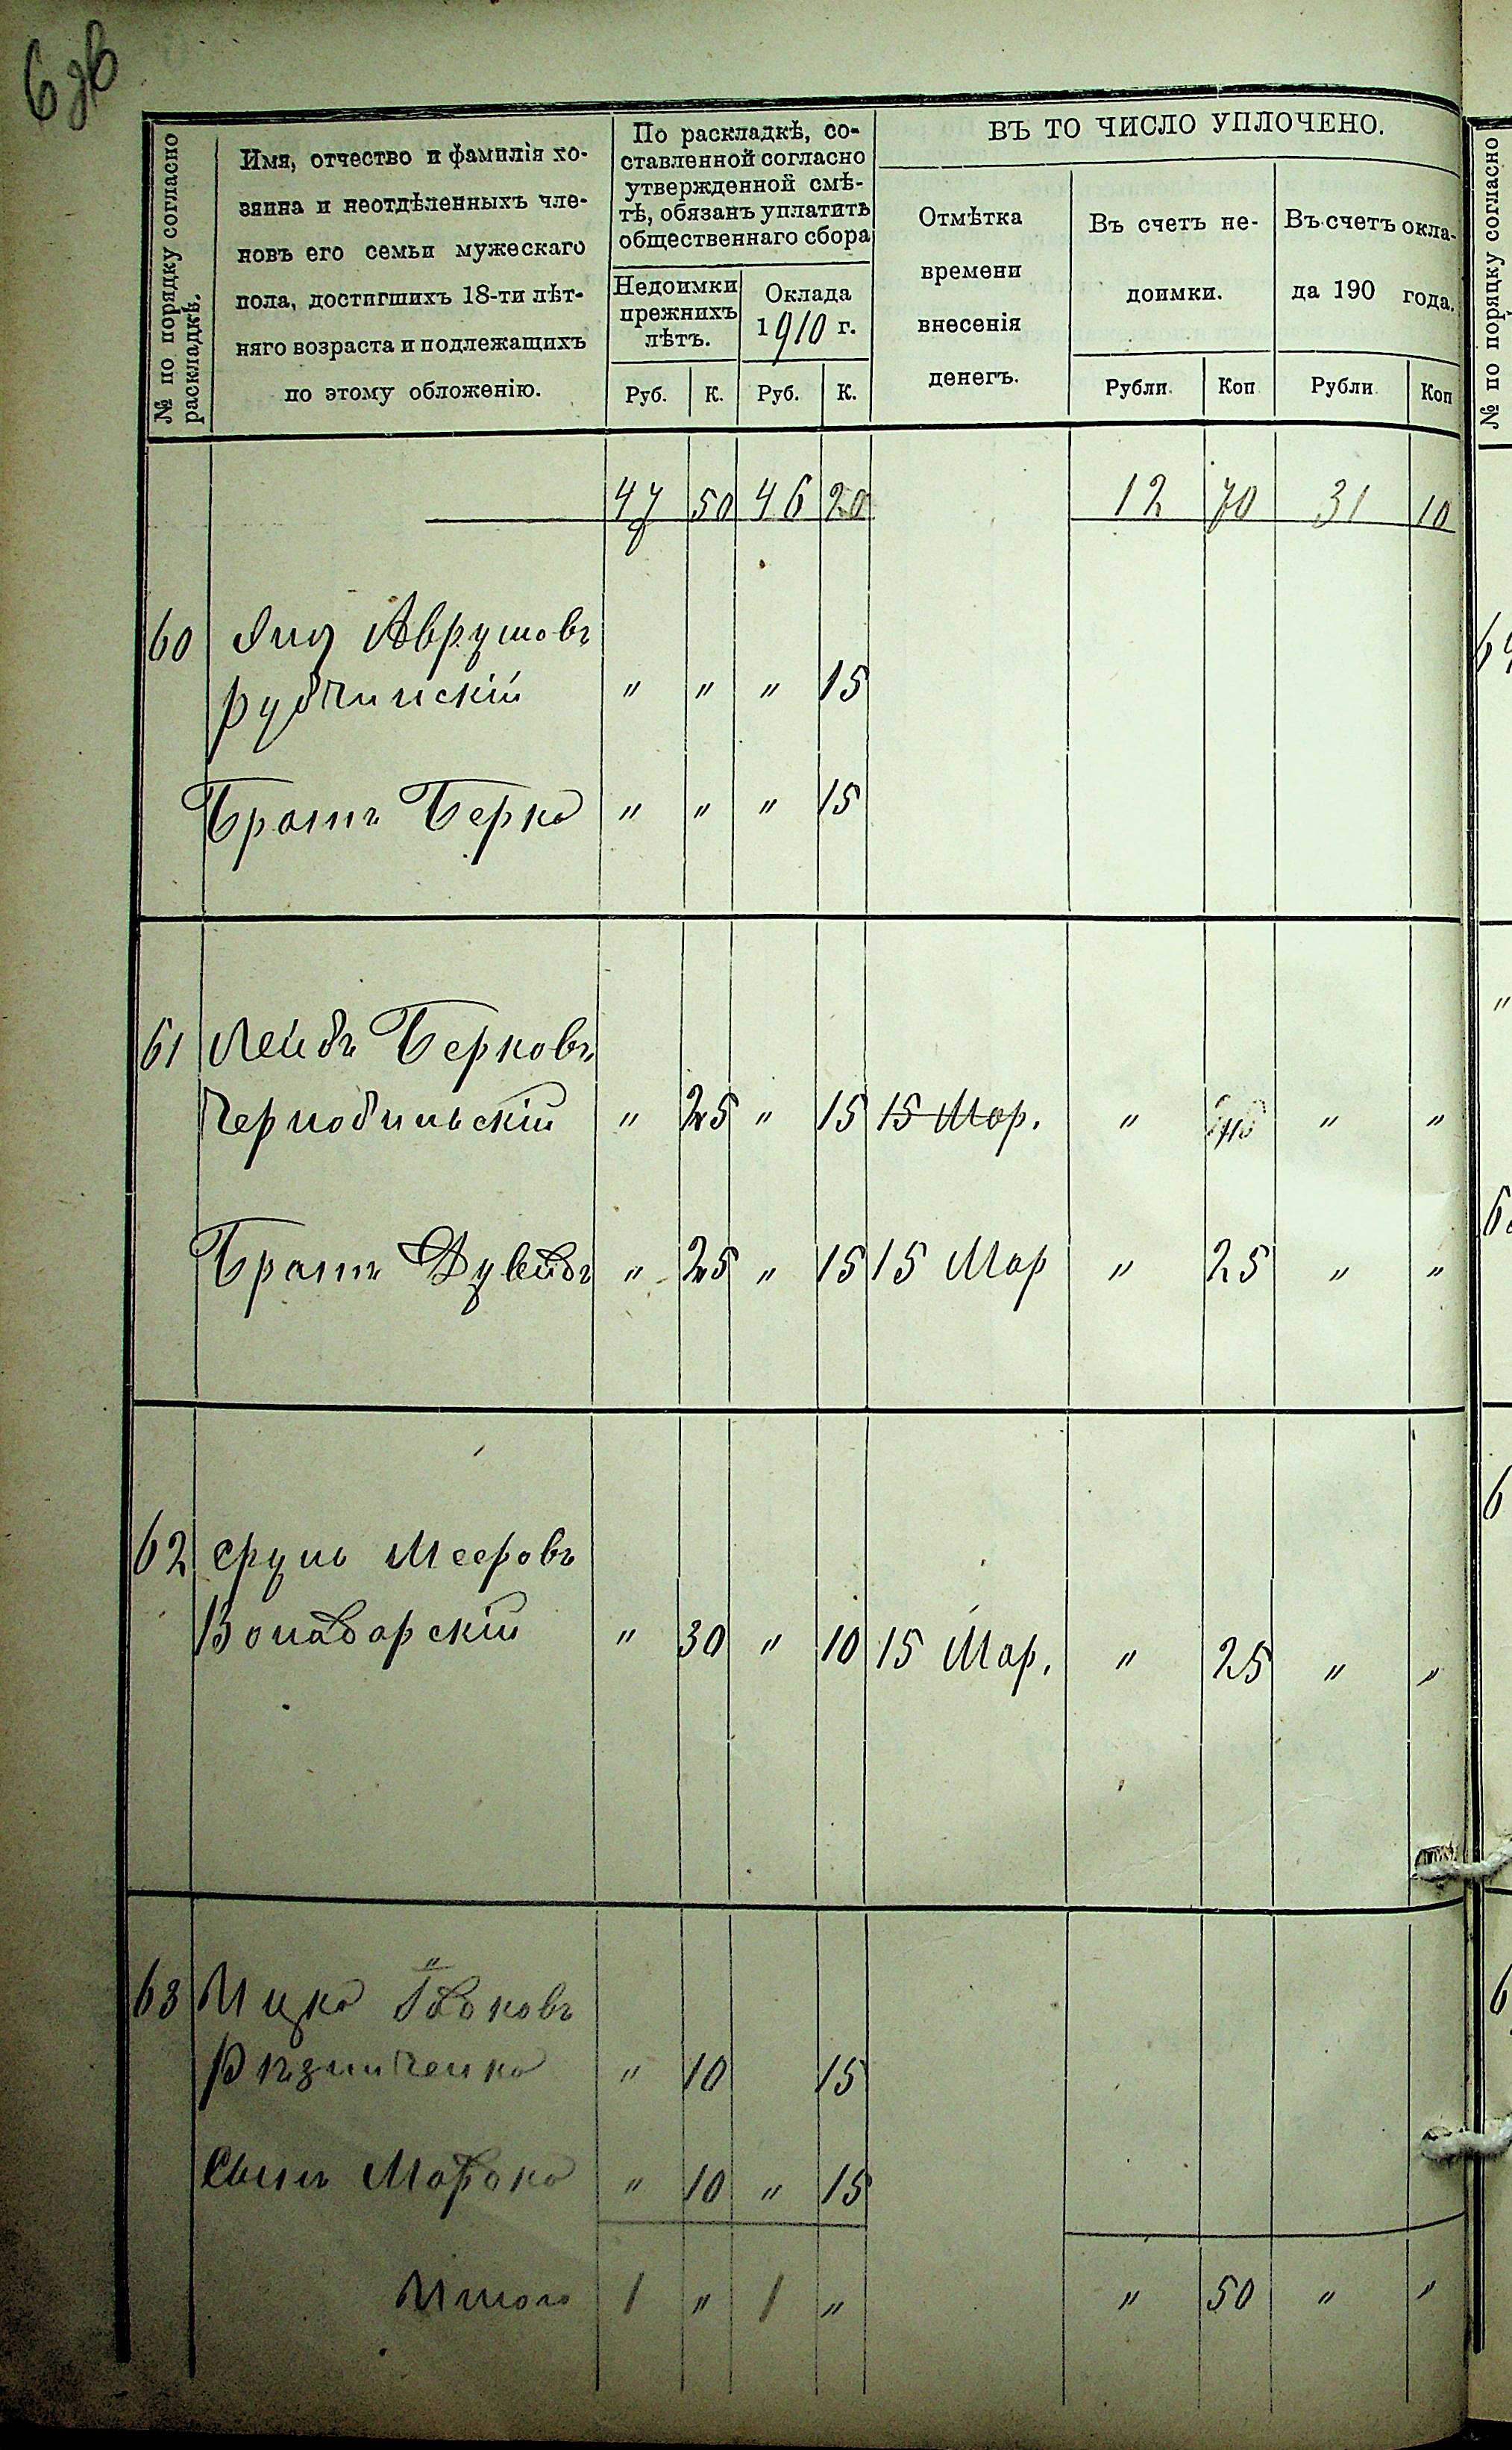 6 об
№ по порядку согласно раскладкѣ.
Имя, отчество и фамилія хо-
зяина и неотдѣленныхъ чле-
новъ его семьи мужескаго
пола, достигшихъ 18-ти лѣт-
няго возраста и подлежащихъ
по этому обложенію.
По раскладкѣ, со-
ставленной согласно
утвержденной смѣ-
тѣ, обязанъ уплатить
общественнаго сбора
Недоимки
прежнихъ
лѣтъ.
Оклада
1910 г.
Руб. К. Руб. К.
ВЪ ТО ЧИСЛО УПЛОЧЕНО.
Отмѣтка
времени
внесенія
денегъ.
Въ счетъ не-
доимки.
Въ счетъ окла-
да 190 года.
Рубли. Коп Рубли Коп
47 50 46 20 12 70 31 10
60 Аврумовъ
Рубчинскій " " " 15
Братъ Берко " " " 15
61 Лейбъ Берковъ
Чернобильскій " 25 " 15 15 Мар. " " "
Братъ Дувидъ " 25 " 15 15 Мар " 25 " "
62 Сруль Мееровъ
Вонадарскій " 30 " 10 15 Мар. " 25 " "
63 Ицко
Рѣзниченко " 10 15
Сынъ " 10 " 15
Итого 1 " 1 " " 50 " "
№ по порядку согласно